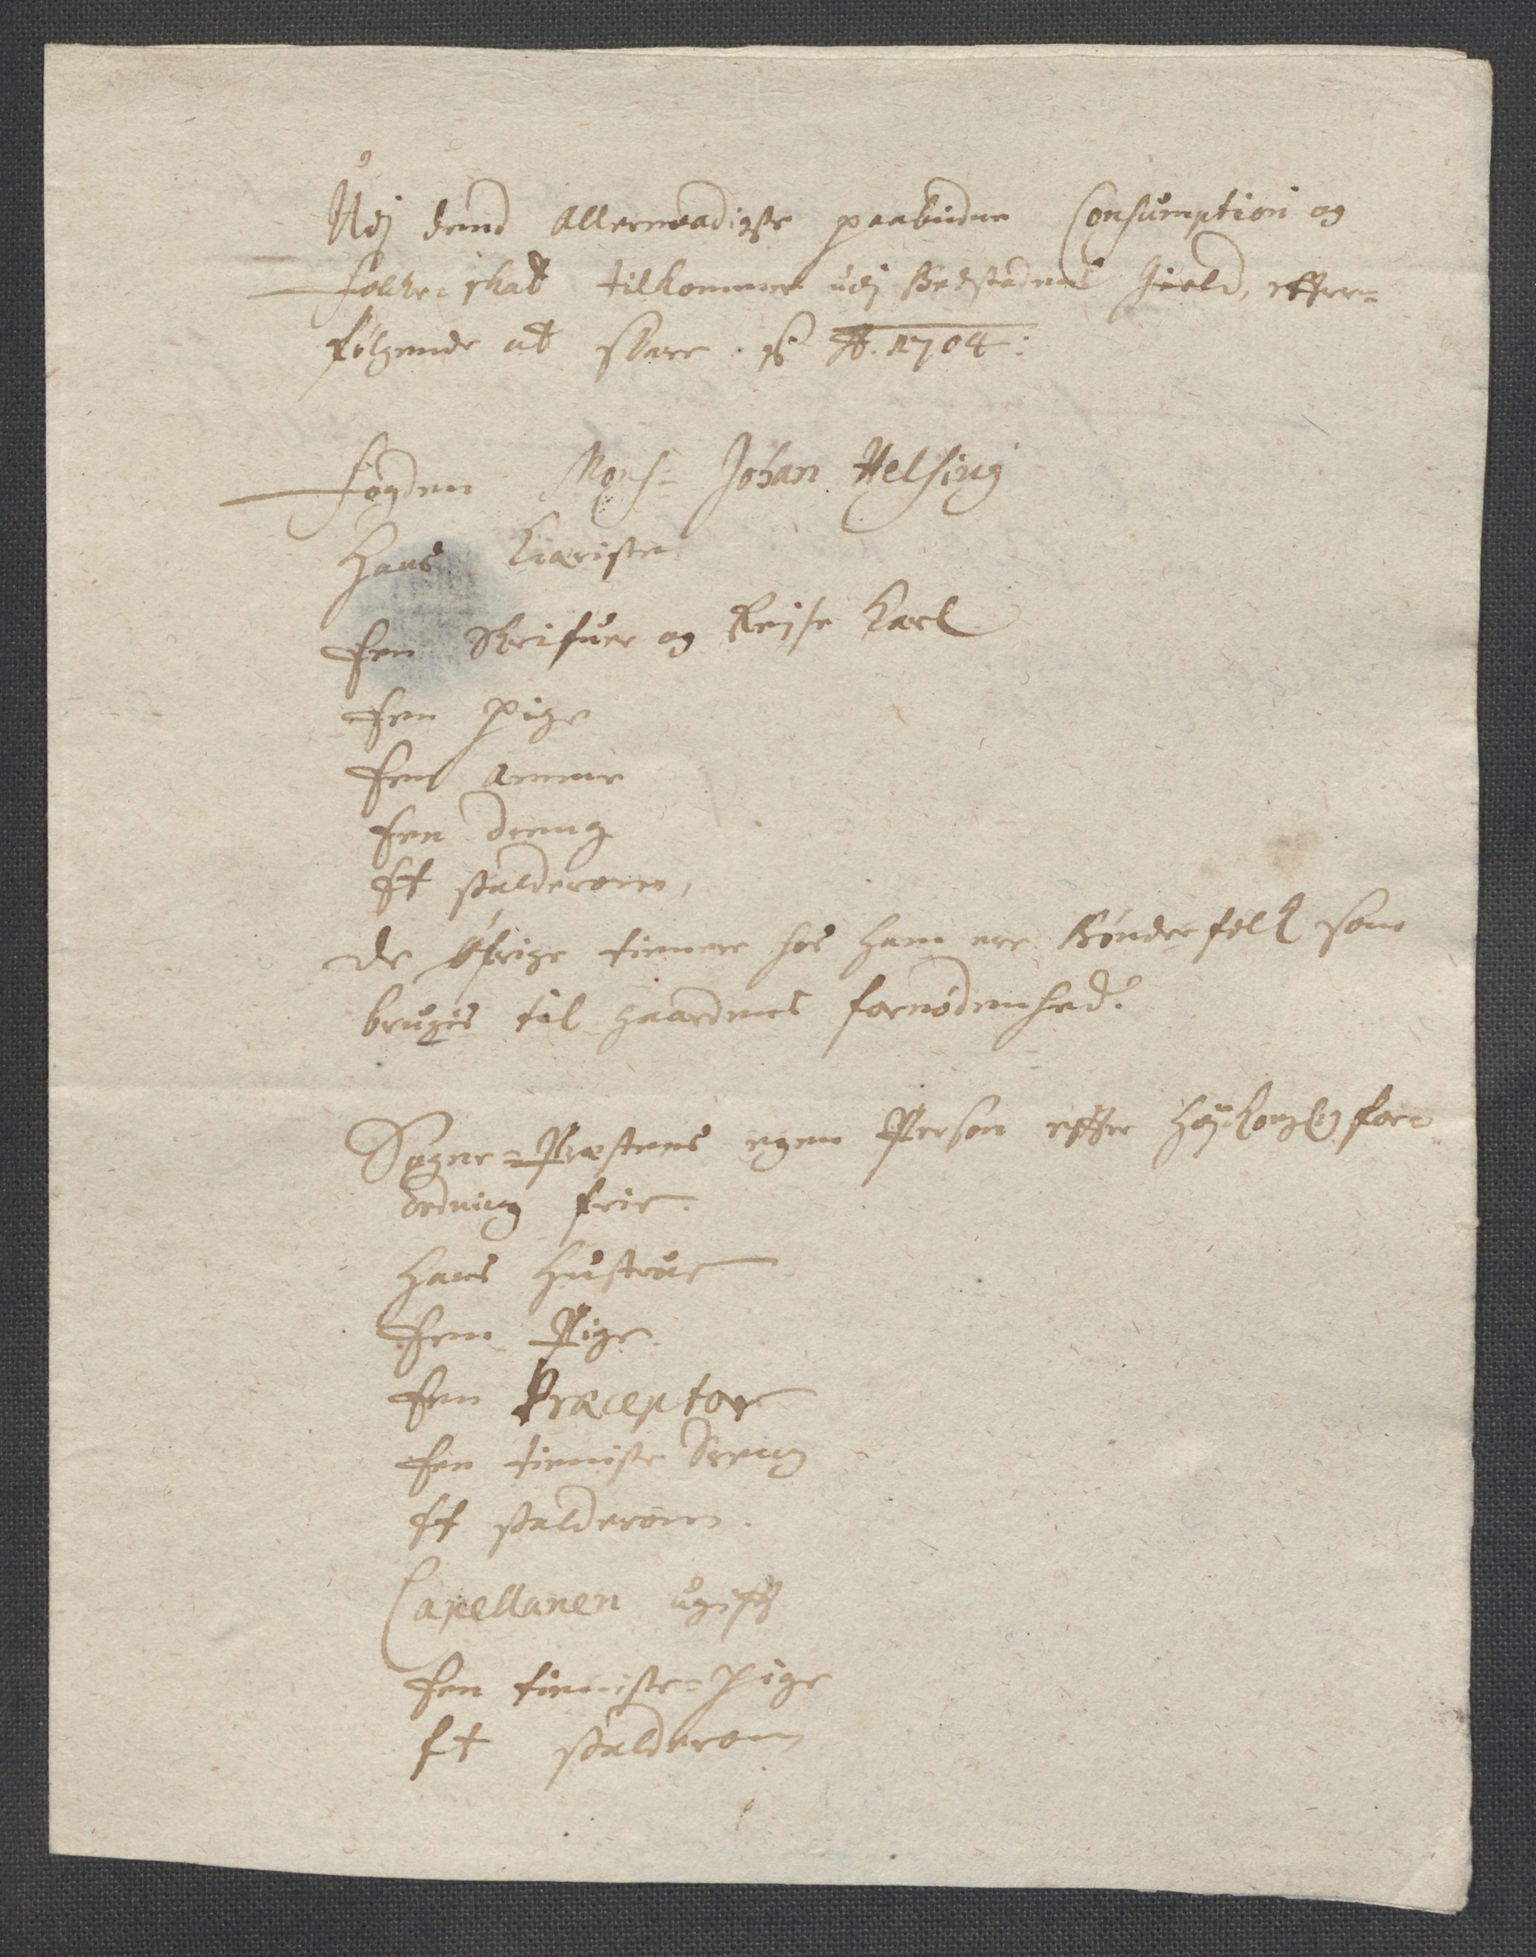 Udj dend Allernaadigste paabudne Consumption og
Folke-skat tilkommer udj Bedstadens Gield, effter-
følgende at svare p: Ao. 1704:
Fogden Monsr: Johan Helsing
Hans Kieriste
Een Skrifuer og Reise Karl
Een Pige
Een Amme
Een Dreng
Et Ildsted
De Øfrige tienere hos ham ere Bønderfolk som
bruges til gaardens fornødenhed.
Sogne-Præstens egen Person effter Høy: Kongl: for-
ordning frie.
Hans Hustrue
Een Pige
Een Præceptor
Een tieniste Dreng
Et
Capellanen ugifft
Een tieniste-Pige
Et